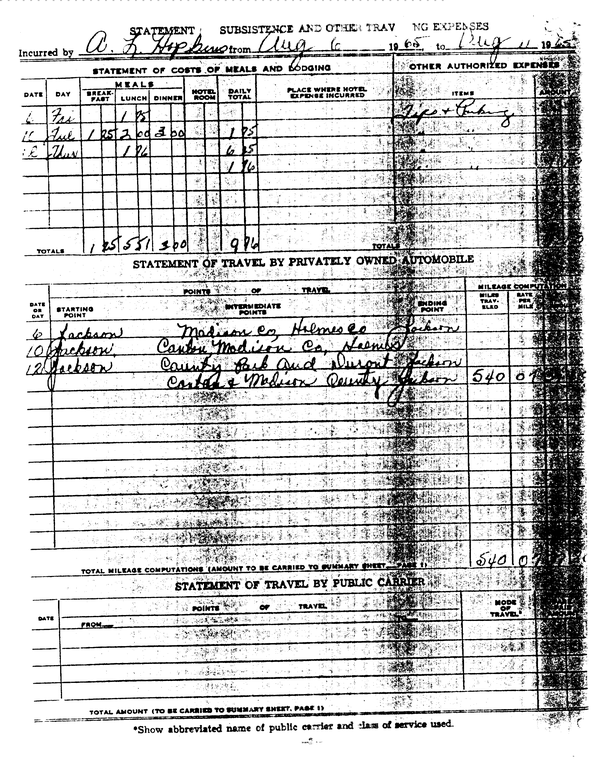 STATEMENT SUBSISTENCE AND OTHER TRAV NG EXPENSES
Incurred by A. L. Hopkins from Aug 6 1965, to Aug 11 1965
STATEMENT OF COSTS OF MEALS AND LODGING OTHER AUTHORIZED EXPENSES
DATE DAY MEALS HOTEL ROOM DAILY TOTAL PLACE WHERE HOTEL EXPENSE INCURRED ITEMS AMOUNT
BREAK-FAST LUNCH DINNER
6 Fri 1 75 Tips & Parking
Tue 1 25 2 00 3 00 1 75 "
Thur 1 76 6 25 "
1 76 "
TOTALS 1 25 5 51 3 00 9 76 TOTALS
STATEMENT OF TRAVEL BY PRIVATELY OWNED AUTOMOBILE
POINTS OF TRAVEL MILEAGE COMPUTATION
DATE OR DAY STARTING POINT INTERMEDIATE POINTS ENDING POINT MILES TRAV-ELED RATE PER MILE
6 Jackson Madison Co, Holmes Co Jackson
10 Jackson, Canton Madison Co, Holmes
12 Jackson County Park and Durant Jackson
Canton & Madison County Jackson 540 07
TOTAL MILEAGE COMPUTATIONS (AMOUNT TO BE CARRIED TO SUMMARY SHEET, PAGE 1) 540 07
STATEMENT OF TRAVEL BY PUBLIC CARRIER
DATE POINTS OF TRAVEL MODE OF TRAVEL*
FROM TO
TOTAL AMOUNT (TO BE CARRIED TO SUMMARY SHEET, PAGE 1)
*Show abbreviated name of public carrier and class of service used.